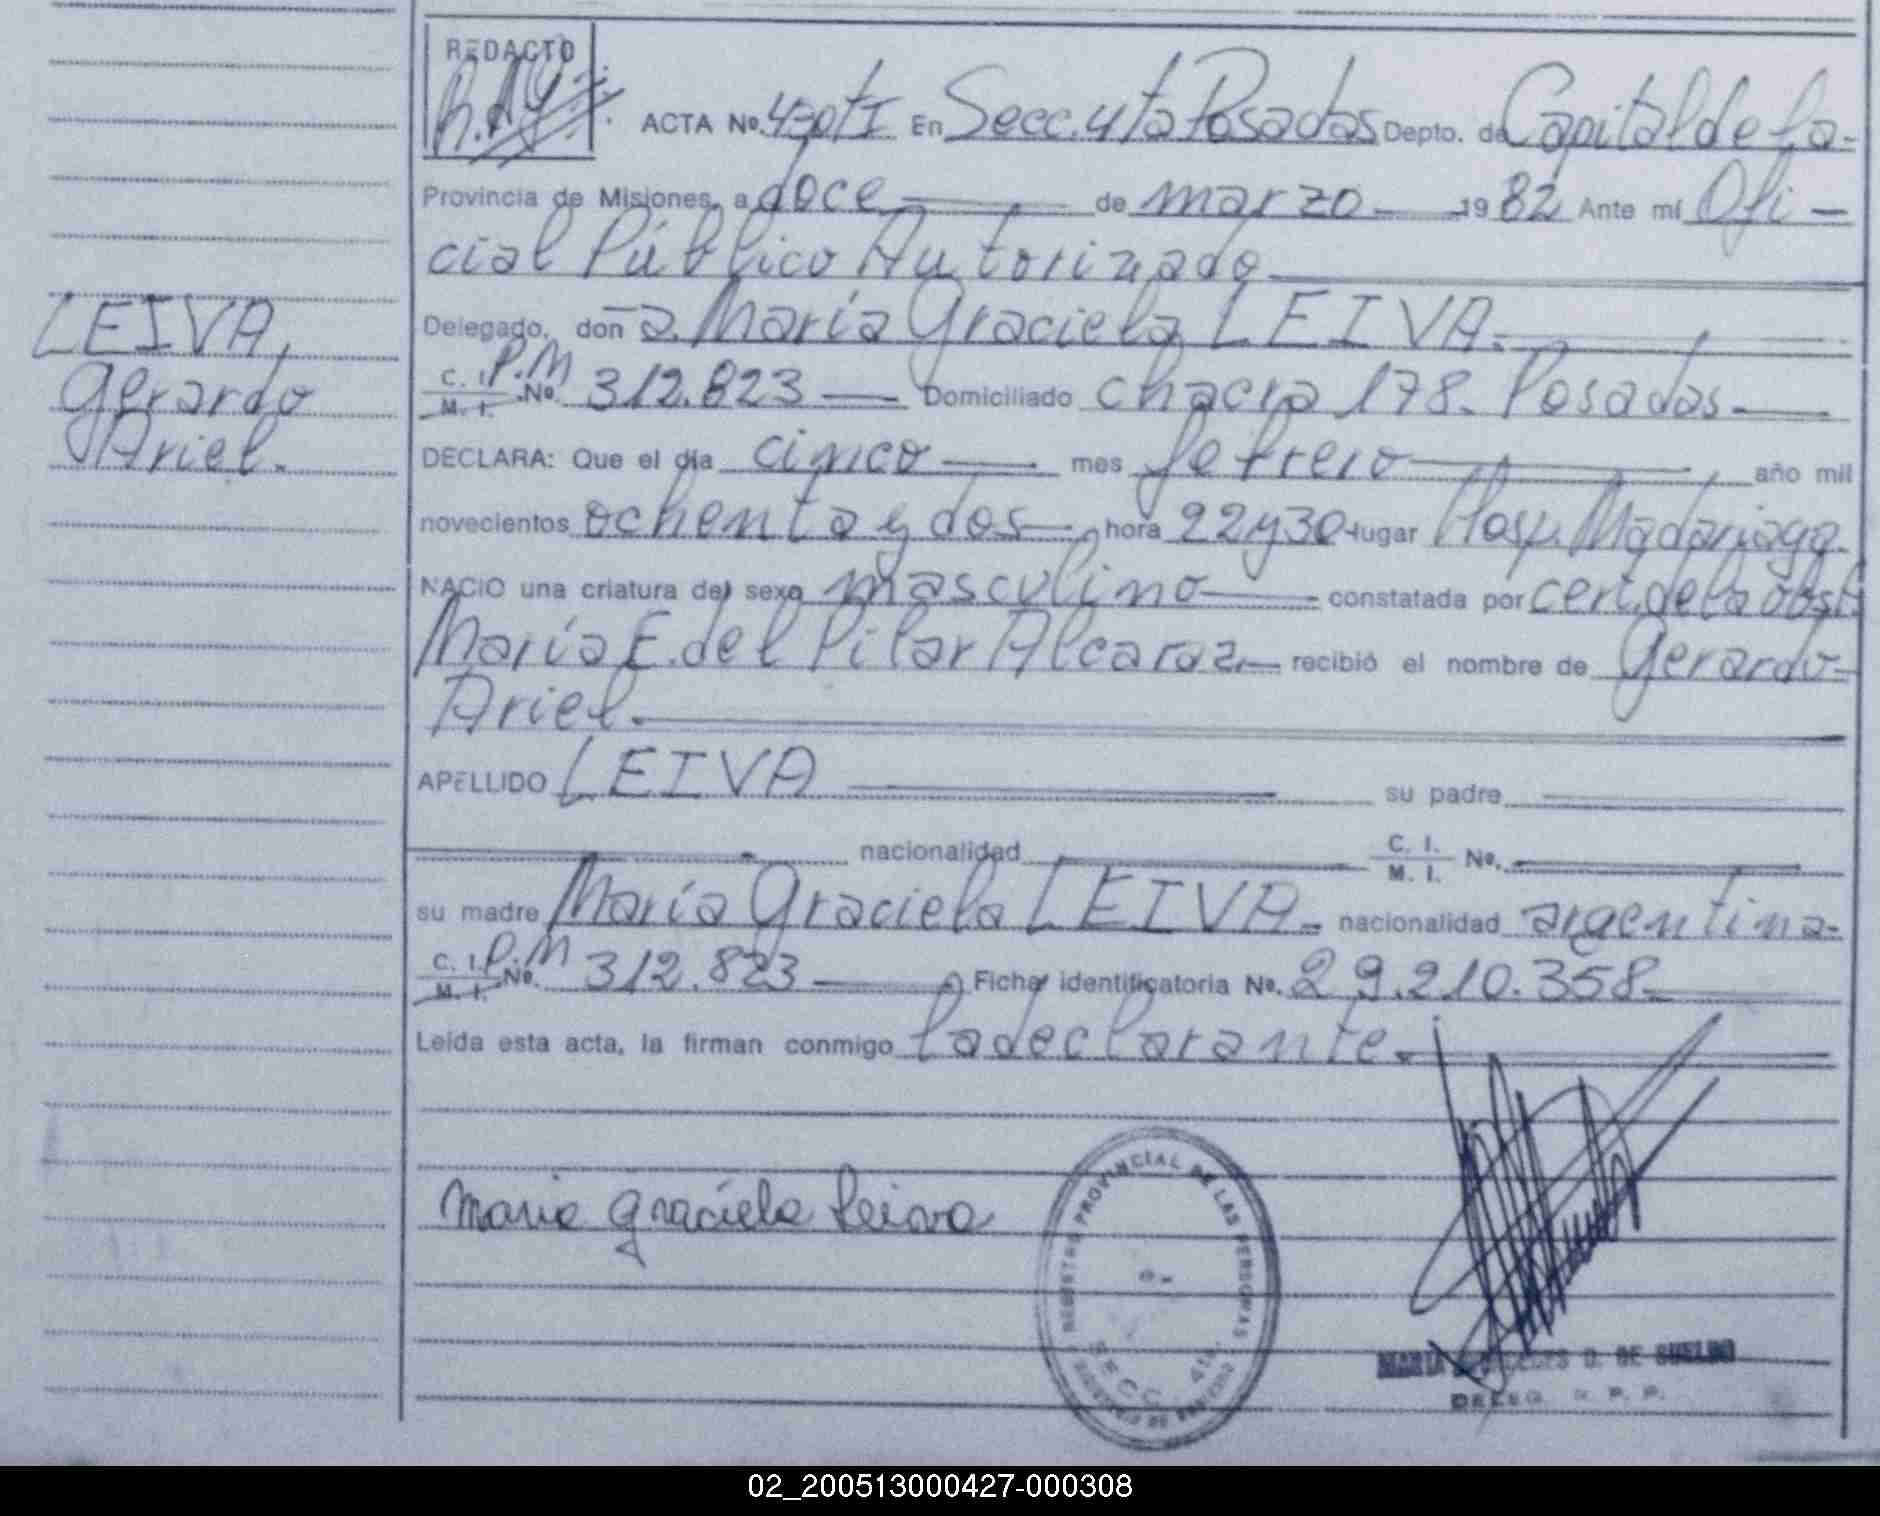 REDACTO
ACTA Nº. En Secc. 4ta Posadas Depto. de Capital de la-
Provincia de Misiones, a doce de marzo 1982 Ante mí Ofi-
cial Público Autorizado
LEIVA,
Gerardo
Ariel.-
Delegado, don-a. María Graciela LEIVA.-
C. I. M. I. P.M Nº. 312.823 Domiciliado chacra 178. Posados-
DECLARA: Que el día cinco mes febrero año mil
novecientos ochenta y dos hora 22y30 lugar Hosp. Madariaga.
NACIO una criatura del sexo masculino constatada por cert. de la obst.
María E. del Pilar Alcaraz.- recibió el nombre de Gerardo-
Ariel.-
APELLIDO LEIVA su padre
nacionalidad C. I. M. I. Nº.
su madre María Graciela LEIVA.- nacionalidad argentina-
C. I. M. I. P.M Nº. 312.823 Ficha identificatoria Nº. 29.210.358-
Leída esta acta, la firman conmigo la declarante.-
Maria Graciela Leiva
REGISTRO PROVINCIAL DE LAS PERSONAS
SECC. 4ta.
PROVINCIA DE MISIONES
MARIA D. DE SUELDO
DELEG. R. P. P.
02_200513000427-000308